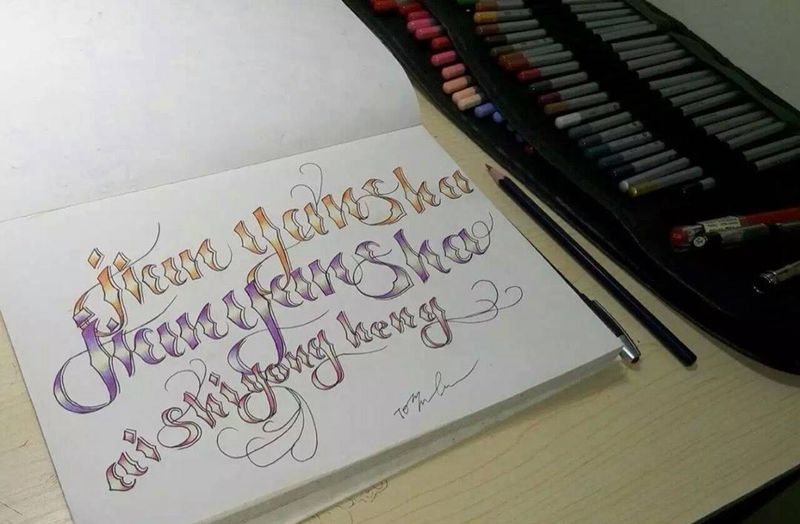 jian yansha
jianyansha
ai shiyong heng
Tom